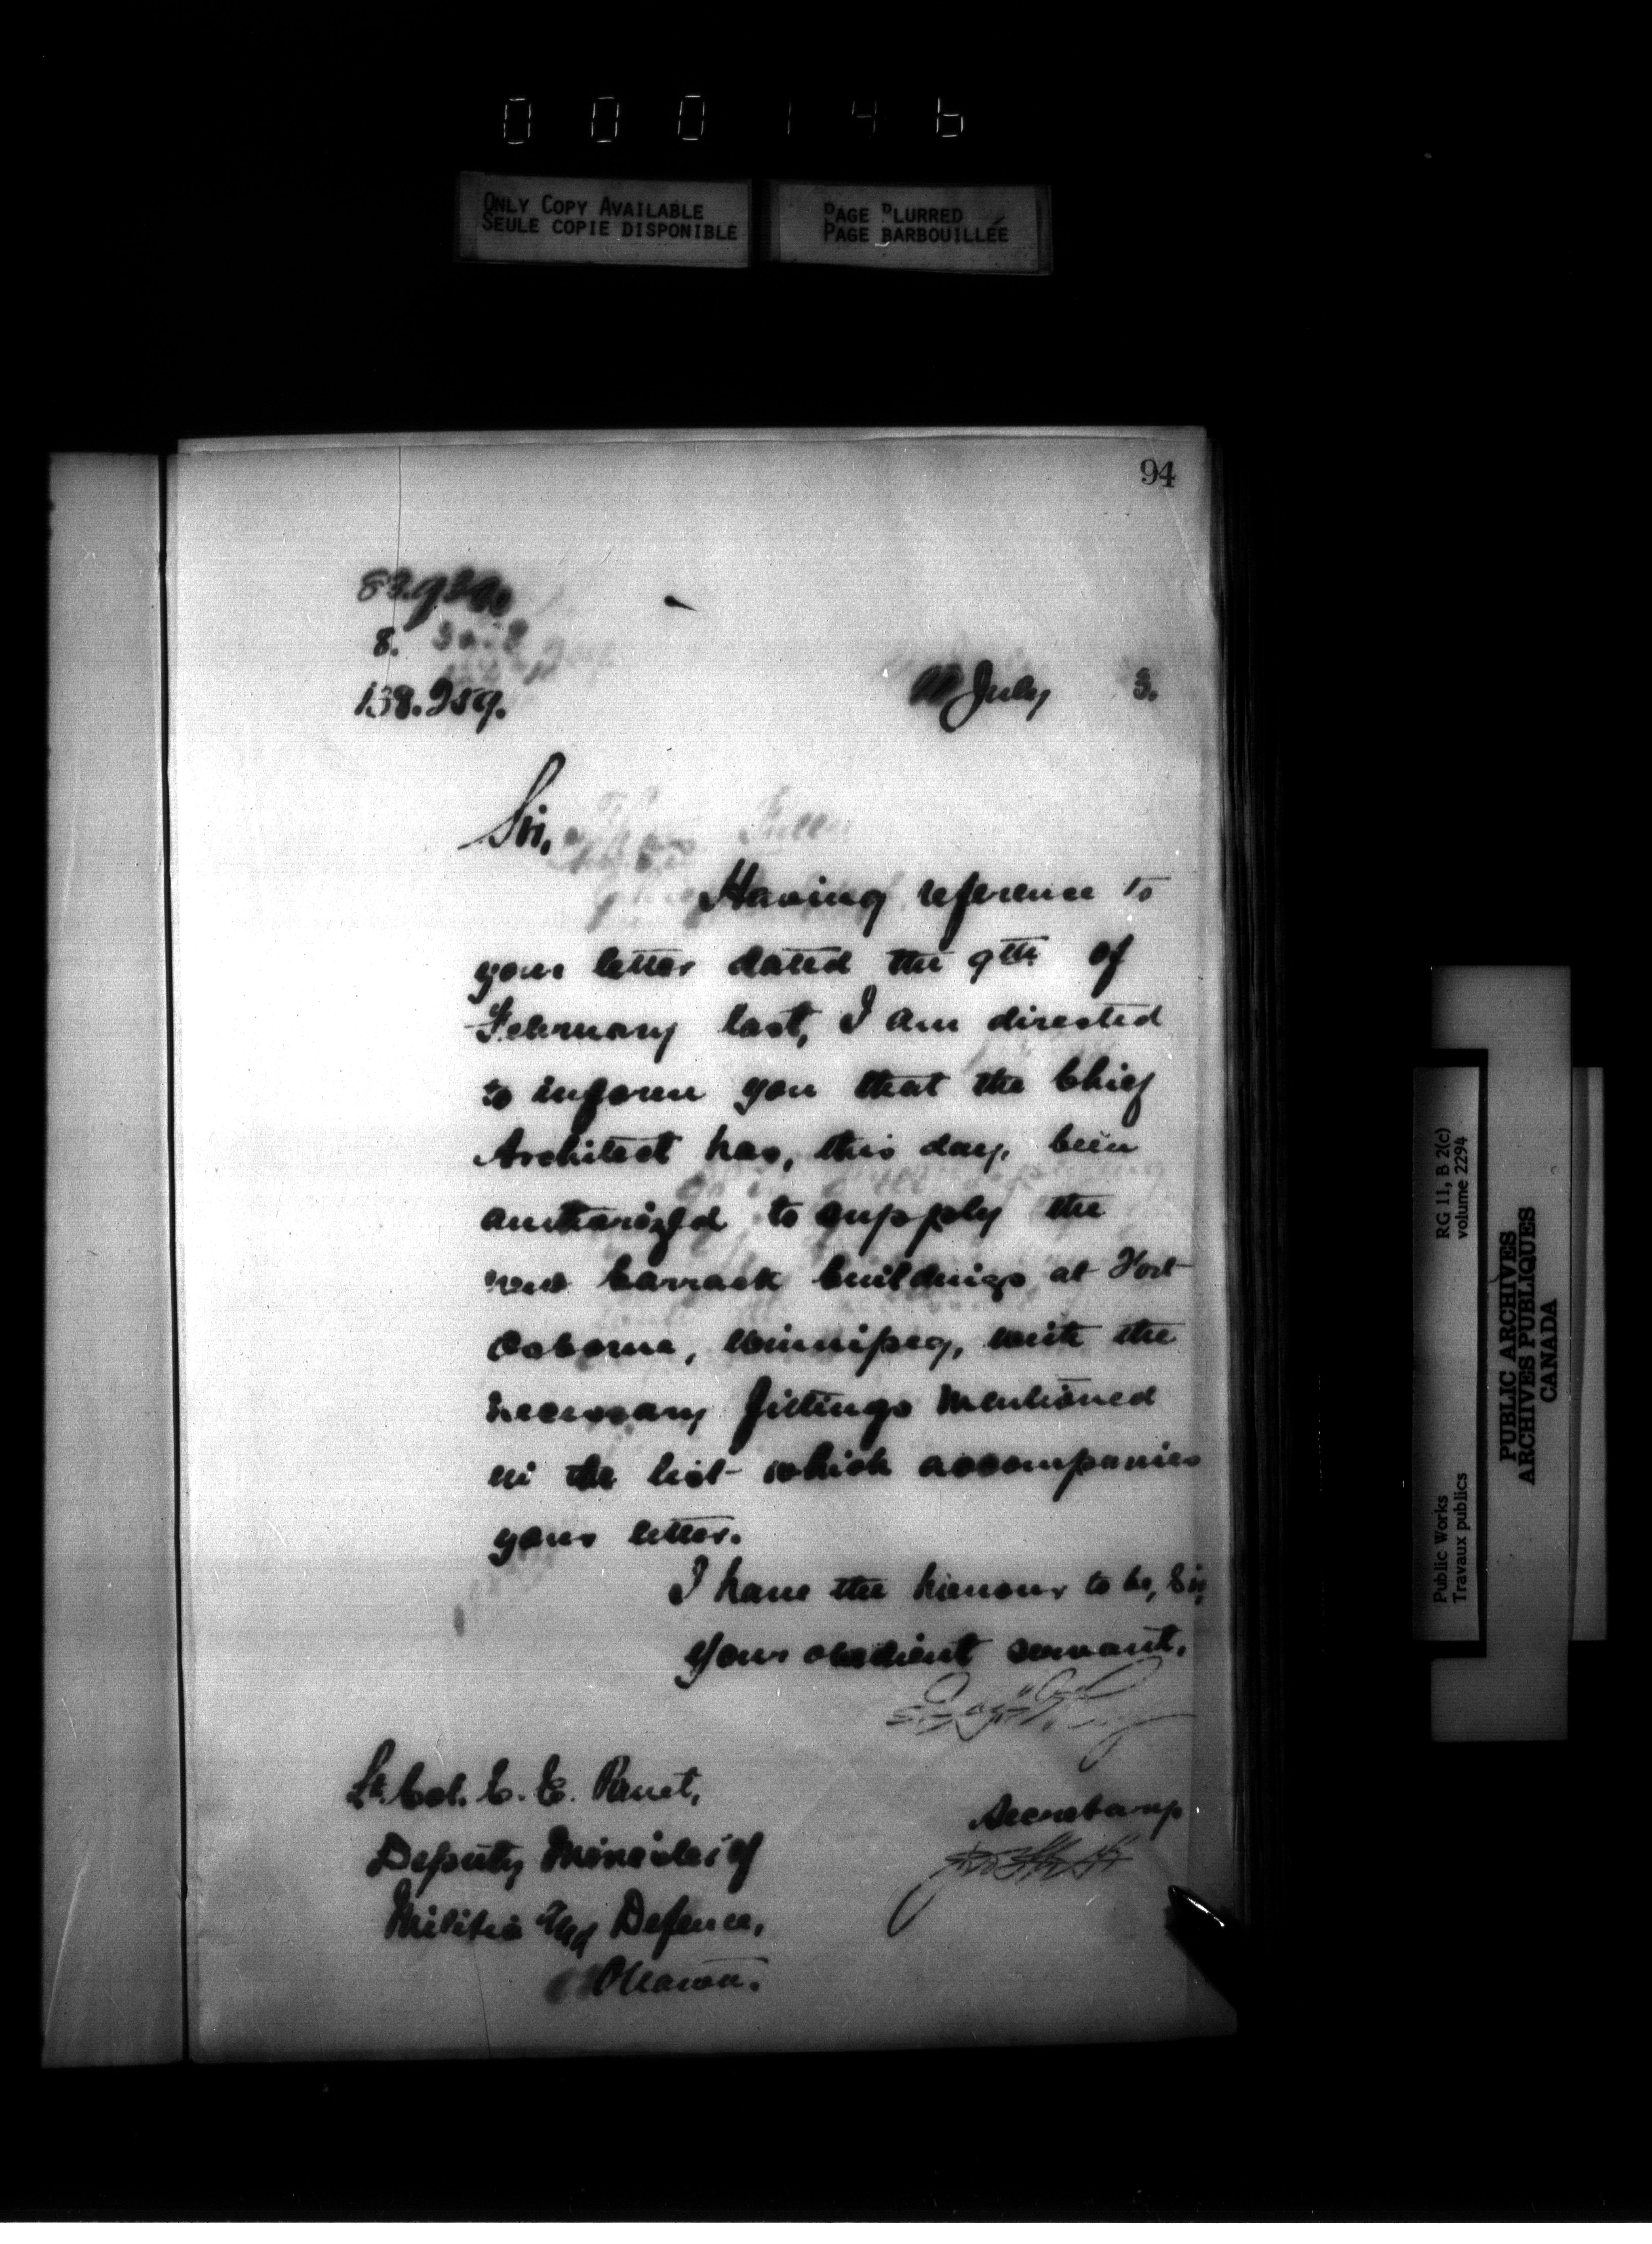 000146
ONLY COPY AVAILABLE
SEULE COPIE DISPONIBLE
PAGE BLURRED
PAGE BARBOUILLÉE
94
8.
138.959.
July 3.
Sir,
Having reference to
your letter dated the 9th of
February last, I am directed
to inform you that the Chief
Architect has, this day, been
authorized to supply the
new barrack buildings at Fort
Osborne, Winnipeg, with the
necessary fittings mentioned
in the list which accompanies
your letter.
I have the honour to be, Sir,
Your obedient servant,
Secretary
Lt. Col. C. E. Panet,
Deputy Minister of
Militia and Defence,
Ottawa.
Public Works
Travaux publics
RG 11, B 2(c)
volume 2294
PUBLIC ARCHIVES
ARCHIVES PUBLIQUES
CANADA